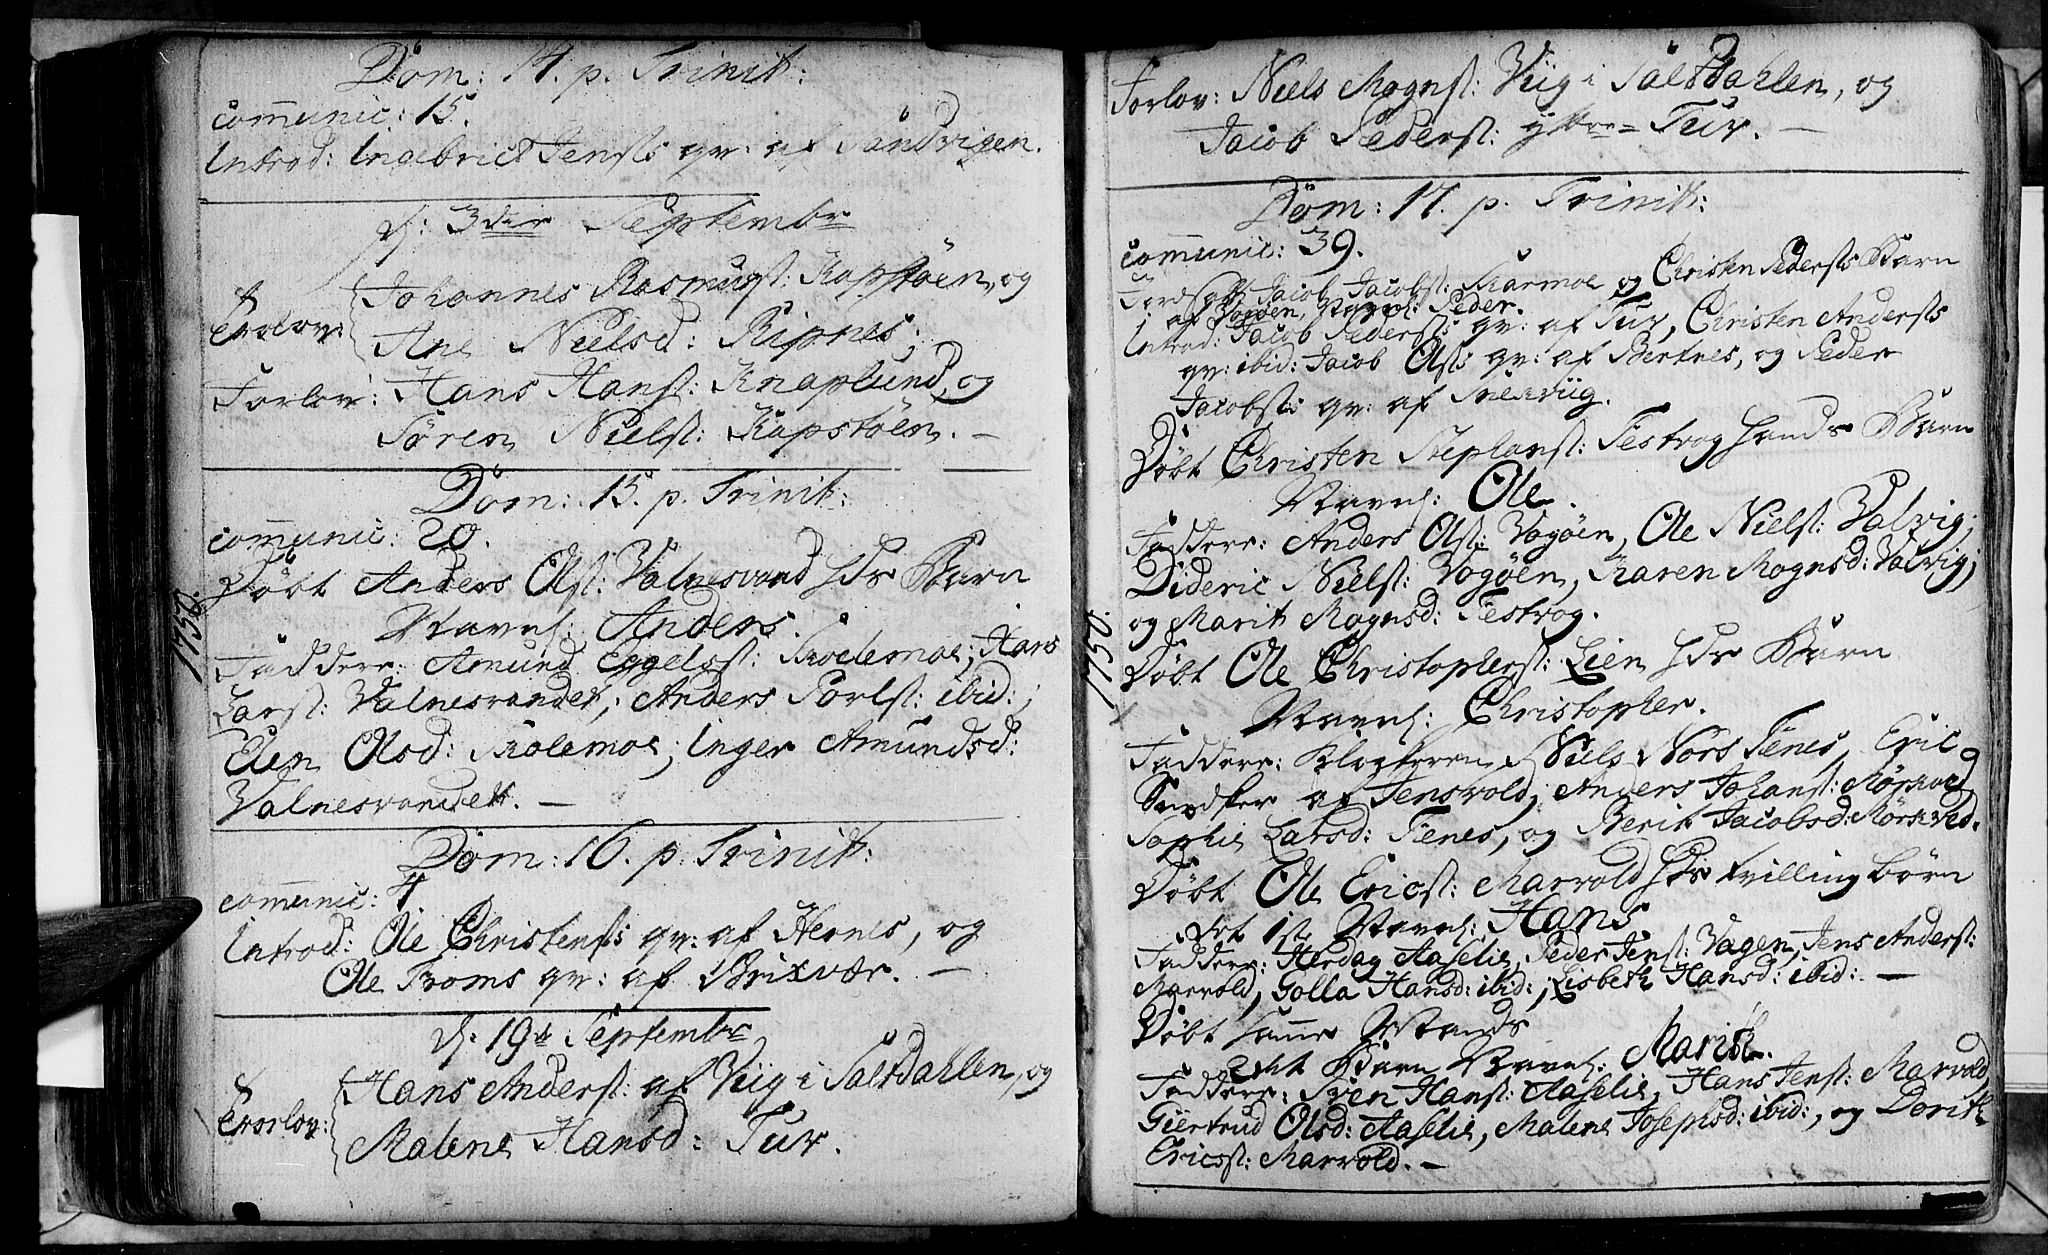 Dom: 14. p. Trinit:
communic: 15.
Introd: Ingebrict Jensts qv: af Sandvigen.
d: 3die Septembr
Trolov: Johannes Rasmusst: Kapstöen, og
Ane Nielsd: Ripnes;
Forlov: Hans Hansst: Knaplund, og
Sören Nielsst: Kapstöen. —
Dom: 15. p. Trinit:
communic: 20.
Döbt Anders Olst: Valnesvand Hds Barn
Navnl: Anders.
Faddere: Amund Eggelsst: Skoelemoe; Hans
Larst: Valnesvandet; Anders Porlst: ibid:;
Elen Olsd: Skolemoe; Inger Amundsd:
Valnesvandet. —
1750.
Dom: 16. p. Trinit:
communic: 4
Introd: Ole Christensts qv: af Hernes, og
Ole Troms qv: af Brixvær. —
d: 19de Septembr
Trolov: Hans Anderst: af Viig i Saltdahlen, og
Malene Hansd: Tuv.
Forlov: Niels Mognst: Viig i Saltdahlen, og
Jacob Pederst: yttre= Tuv. —
Dom: 17. p. Trinit:
communic: 39.
Jacob Jacobst: Skarmoe og Christen Pedersts Barn
af Vogöen, Navnl: Peder.
Introd: Jacob Pedersts qv: af Tuv, Christen Andersts
qv: ibid: Jacob Olsts qv: af Bertnes, og Peder
Jacobsts qv: af Snekviig.
Döbt Christen Stephanst: Festvog Hands Barn
Navnl: Ole.
Faddere: Anders Olst: Vogöen, Ole Nielst: Valvig;
Dideric Nielst: Vogöen, Karen Mognsd: Valvig;
og Marit Mognsd: Festvog.
1750.
Döbt Ole Christopherst: Lien Hds Barn
Navnl: Christopher.
Faddere: Klockeren Niels Nors Fenes, Eric
af Jensvold; Anders Johanst: Mörkved
Sophie Larsd: Fenes, og Berit Jacobsd: Mörkved.
Döbt Ole Ericst: Marvold Hds tvilling börn
Det 1ste Navnl: Hans
Faddere: Herdag Aaselie, Peder Jenst: Vagen, Jens Anderst:
Marvold, Golla Hansd: ibid:, Lisbeth Hansd: ibid: —
Döbt samme Mands
2det Barn Navnl: Marit.
Faddere: Sven Hanst: Aaselie, Hans Jenst: Marvold
Giertrud Olsd: Aaselie, Malene Josephsd: ibid:, og Dorith
Ericst: Marvold. —